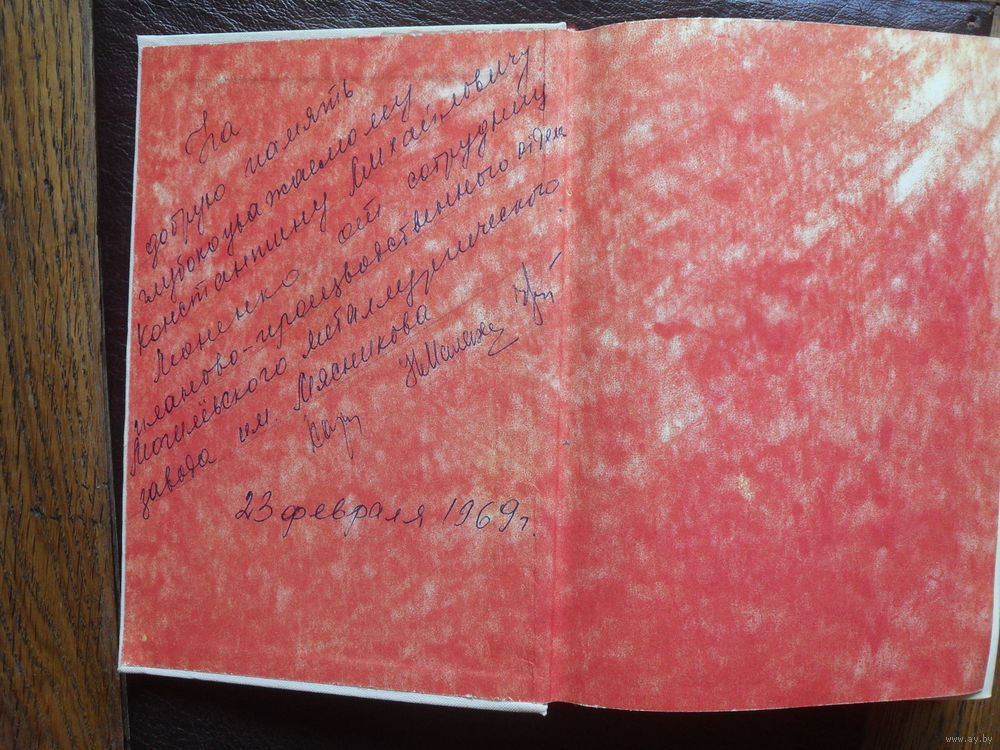 На
добрую память
глубокоуважаемому
Константину Михайловичу
от сотрудниц
планово-производственного отдела
Могилёвского металлургического
завода им. Мясникова
23 февраля 1969 г.
www.ay.by